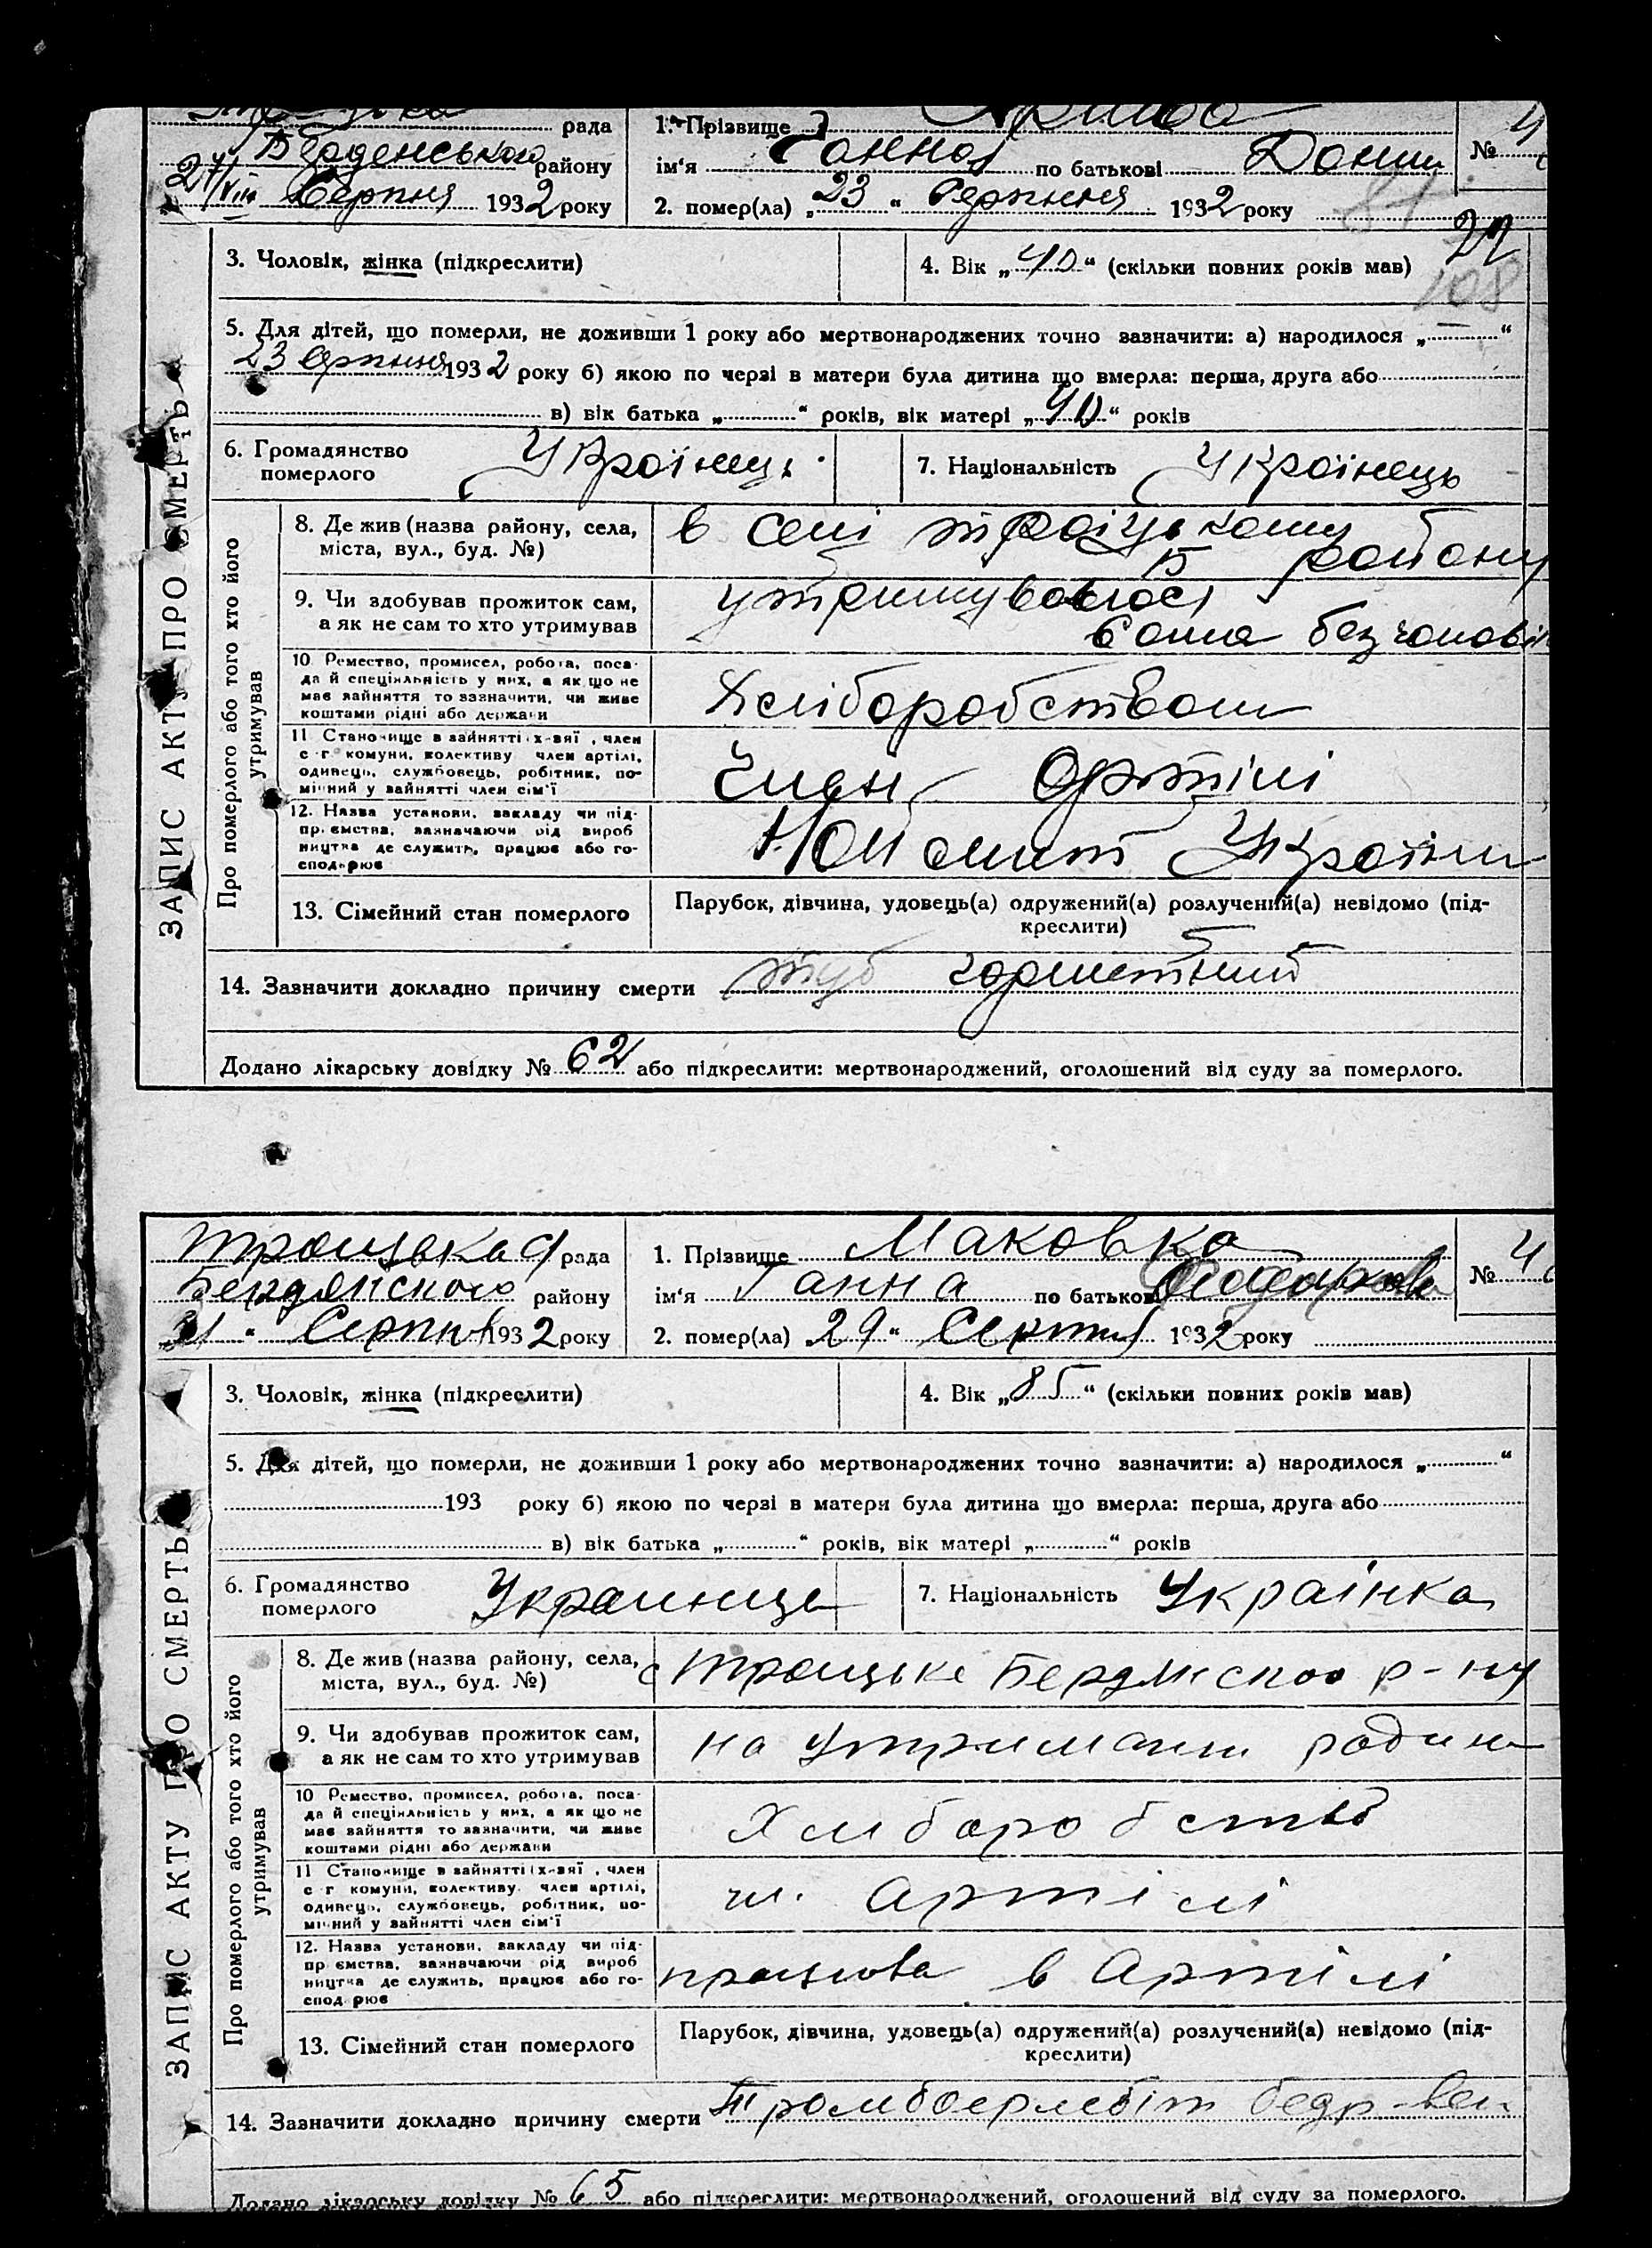 рада
1. Прізвище
№ 4
району
ім'я Ганна по батькові
24/VIII Серпня 1932 року
2. помер(ла) „23" Серпння 1932 року
81
22
108
3. Чоловік, жінка (підкреслити)
4. Вік „40" (скільки повних років мав)
5. Для дітей, що померли, не доживши 1 року або мертвонароджених точно зазначити: а) народилося „ "
23 Серпння 1932 року б) якою по черзі в матери була дитина що вмерла: перша, друга або
в) вік батька „ " років, вік матері „40" років
6. Громадянство
померлого
Україінець
7. Національність
Україінець
ЗАПИС АКТУ ПРО СМЕРТЬ
Про померлого або того хто його
утримував
8. Де жив (назва району, села,
міста, вул., буд. №)
в селі троіцькому
Б району
9. Чи здобував прожиток сам,
а як не сам то хто утримував
утримувалася
сама без чоловік
10 Ремество, промисел, робота, поса-
да й спеціяльність у них, а як що не
має зайняття то зазначити, чи живе
коштами рідні або держави
Хліборобством
11 Становище в зайнятті: х-зяї , член
с-г комуни, колективу член артілі,
одинець, службовець, робітник, по-
мічний у зайнятті член сім'ї
Член Артілі
12. Назва установи, закладу чи під-
пр.ємства, зазначаючи рід вироб
ництва де служить, працює або го-
сподарює
Украіни
13. Сімейний стан померлого
Парубок, дівчина, удовець(а) одружений(а) розлучений(а) невідомо (під-
креслити)
14. Зазначити докладно причину смерти туб
Додано лікарську довідку № 62 або підкреслити: мертвонароджений, оголошений від суду за померлого.
Троицька рада
1. Прізвище Маковка
№ 4
Бердянского району
ім'я Ганна по батькові
31 " Серпня 1932 року
2. помер(ла) „29" Серпня 1932 року
3. Чоловік, жінка (підкреслити)
4. Вік „85" (скільки повних років мав)
5. Для дітей, що померли, не доживши 1 року або мертвонароджених точно зазначити: а) народилося „ "
193 року б) якою по черзі в матери була дитина що вмерла: перша, друга або
в) вік батька „ " років, вік матері „ " років
6. Громадянство
померлого
7. Національність
Украінка
ЗАПИС АКТУ ПРО СМЕРТЬ
Про померлого або того хто його
утримував
8. Де жив (назва району, села,
міста, вул., буд. №)
с Троицьке Бердянского р-ну
9. Чи здобував прожиток сам,
а як не сам то хто утримував
на утриманни родини
10 Ремество, промисел, робота, поса-
да й спеціяльність у них, а як що не
має зайняття то зазначити, чи живе
коштами рідні або держави
Хлиборобство
11 Становище в зайнятті: х-зяї , член
с-г комуни, колективу член артілі,
одинець, службовець, робітник, по-
мічний у зайнятті член сім'ї
чл. Артілі
12. Назва установи, закладу чи під-
пр ємства, зазначаючи рід вироб
ництва де служить, працює або го-
спод рює
працюва в Артілі
13. Сімейний стан померлого
Парубок, дівчина, удовець(а) одружений(а) розлучений(а) невідомо (під-
креслити)
14. Зазначити докладно причину смерти бедр. вен
Додано лікарську довідку № 65 або підкреслити: мертвонароджений, оголошений від суду за померлого.